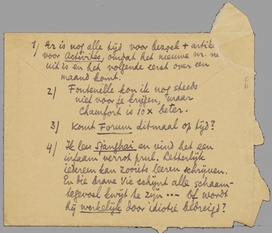 1) Er is nog alle tijd voor bezoek + artikel
voor Activités, omdat het nieuwe nr. nu
uit is en het volgende eerst over een
maand komt.
2) Fontenelle kon ik nog steeds
niet voor je krijgen, maar
Chamfort is 10 x beter.
3) Komt Forum ditmaal op tijd?
4) Ik lees Sjanghai en vind het een
infaam verrot prul. Letterlijk
iedereen kan zooiets leeren schrijven.
En die brave Vic schijnt alle schaam-
tegevoel kwijt te zijn ... Of wordt
hij werkelijk door idiotie bedreigd?